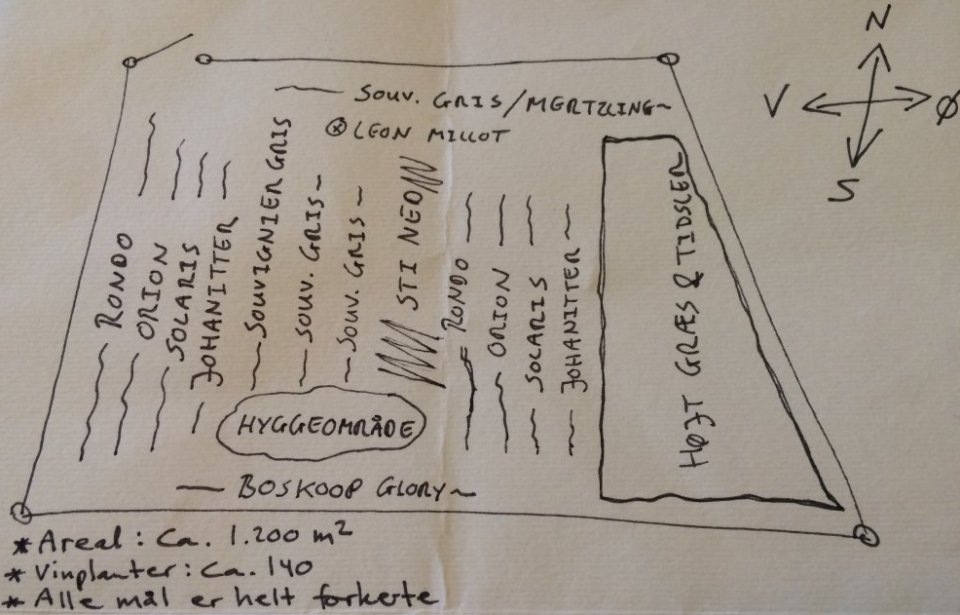 N
V
Ø
S
SOUV. GRIS/MERTZLING
LEON MILLOT
RONDO
ORION
SOLARIS
JOHANITTER
SOUVIGNIER GRIS
SOUV. GRIS
SOUV. GRIS
STI NED
RONDO
ORION
SOLARIS
JOHANITTER
HØJT GRÆS & TIDSLER
HYGGEOMRÅDE
BOSKOOP GLORY
* Areal : Ca. 1.200 m²
* Vinplanter : Ca. 140
* Alle mål er helt forkerte